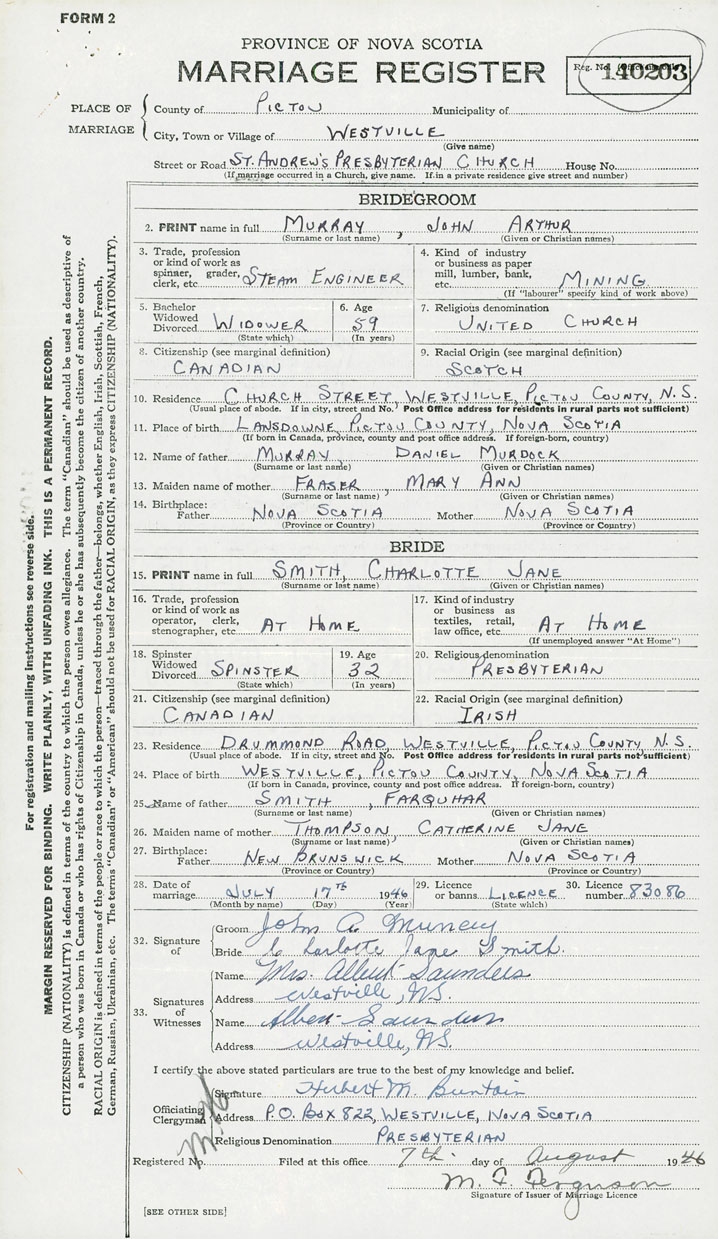 FORM 2
PROVINCE OF NOVA SCOTIA
MARRIAGE REGISTER
Reg. No. 140203
PLACE OF MARRIAGE
County of PICTOU Municipality of
City, Town or Village of WESTVILLE
(Give name)
Street or Road ST. ANDREW'S PRESBYTERIAN CHURCH House No.
(If marriage occurred in a Church, give name. If in a private residence give street and number)
BRIDEGROOM
2. PRINT name in full MURRAY, JOHN ARTHUR
(Surname or last name) (Given or Christian names)
3. Trade, profession or kind of work as spinner, grader, clerk, etc. STEAM ENGINEER
4. Kind of industry or business as paper mill, lumber, bank, etc. MINING
(If "labourer" specify kind of work above)
5. Bachelor Widowed Divorced WIDOWER
(State which)
6. Age 59
(In years)
7. Religious denomination
UNITED CHURCH
8. Citizenship (see marginal definition)
CANADIAN
9. Racial Origin (see marginal definition)
SCOTCH
10. Residence CHURCH STREET, WESTVILLE, PICTOU COUNTY, N.S.
(Usual place of abode. If in city, street and No. Post Office address for residents in rural parts not sufficient)
11. Place of birth LANSDOWNE, PICTOU COUNTY, NOVA SCOTIA
(If born in Canada, province, county and post office address. If foreign-born, country)
12. Name of father MURRAY DANIEL MURDOCK
(Surname or last name) (Given or Christian names)
13. Maiden name of mother FRASER, MARY ANN
(Surname or last name) (Given or Christian names)
14. Birthplace: Father NOVA SCOTIA Mother NOVA SCOTIA
(Province or Country) (Province or Country)
BRIDE
15. PRINT name in full SMITH, CHARLOTTE JANE
(Surname or last name) (Given or Christian names)
16. Trade, profession or kind of work as operator, clerk, stenographer, etc. AT HOME
17. Kind of industry or business as textiles, retail, law office, etc. AT HOME
(If unemployed answer "At Home")
18. Spinster Widowed Divorced SPINSTER
(State which)
19. Age 32
(In years)
20. Religious denomination
PRESBYTERIAN
21. Citizenship (see marginal definition)
CANADIAN
22. Racial Origin (see marginal definition)
IRISH
23. Residence DRUMMOND ROAD, WESTVILLE, PICTOU COUNTY, N.S.
(Usual place of abode. If in city, street and No. Post Office address for residents in rural parts not sufficient)
24. Place of birth WESTVILLE, PICTOU COUNTY, NOVA SCOTIA
(If born in Canada, province, county and post office address. If foreign-born, country)
25. Name of father SMITH, FARQUHAR
(Surname or last name) (Given or Christian names)
26. Maiden name of mother THOMPSON, CATHERINE JANE
(Surname or last name) (Given or Christian names)
27. Birthplace: Father NEW BRUNSWICK Mother NOVA SCOTIA
(Province or Country) (Province or Country)
28. Date of marriage JULY 17th 1946
(Month by name) (Day) (Year)
29. Licence or banns LICENCE
(State which)
30. Licence number 83086
32. Signature of
Groom John A. Murray
Bride Charlotte Jane Smith.
33. Signatures of Witnesses
Name Mrs. Albert Saunders
Address Westville, N.S.
Name Albert Saunders
Address Westville, N.S.
I certify the above stated particulars are true to the best of my knowledge and belief.
Officiating Clergyman
Signature Herbert M. Buntain
Address P.O. BOX 822, WESTVILLE, NOVA SCOTIA
Religious Denomination PRESBYTERIAN
Registered No. Filed at this office 7th day of August 1946
M. F. Ferguson
Signature of Issuer of Marriage Licence
[SEE OTHER SIDE]
For registration and mailing instructions see reverse side.
MARGIN RESERVED FOR BINDING. WRITE PLAINLY, WITH UNFADING INK. THIS IS A PERMANENT RECORD.
CITIZENSHIP (NATIONALITY) is defined in terms of the country to which the person owes allegiance. The term "Canadian" should be used as descriptive of
a person who was born in Canada or who has rights of Citizenship in Canada, unless he or she has subsequently become the citizen of another country.
RACIAL ORIGIN is defined in terms of the people or race to which the person—traced through the father—belongs, whether English, Irish, Scottish, French,
German, Russian, Ukrainian, etc. The terms "Canadian" or "American" should not be used for RACIAL ORIGIN, as they express CITIZENSHIP (NATIONALITY).